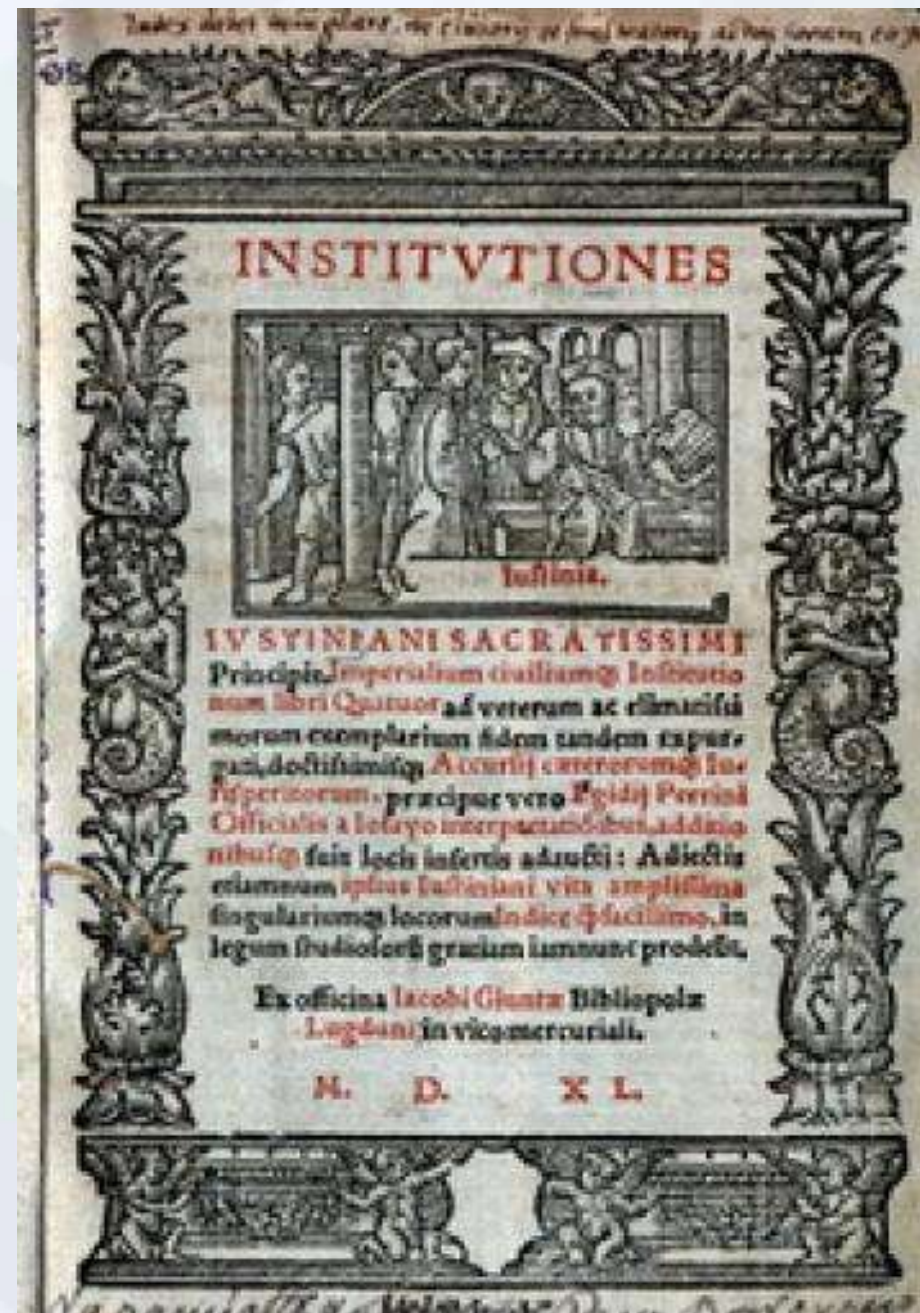 INSTITVTIONES
Iustinia.
IVSTINIANI SACRATISSIMI
Principis, Imperialium ciuiliumq́; Institutio
num libri Quatuor ad veterum ac
morum exemplarium fidem tandem expur-
gati, doctissimisq́; Accursij cæterorumq́; Iu-
risperitorum, præcipue vero Egidij Perrini
Officialis a Iosayo additio
nibusq́; suis locis insertis adaucti: Adiectis
etiamnum ipsius Iustiniani vita amplissima
singulariumq́; locorum Indice facillimo, in
legum studiosorū gratiam iamnunc
Ex officina Iacobi Giuntæ Bibliopolæ
Lugduni in vico mercuriali.
M. D. XL.